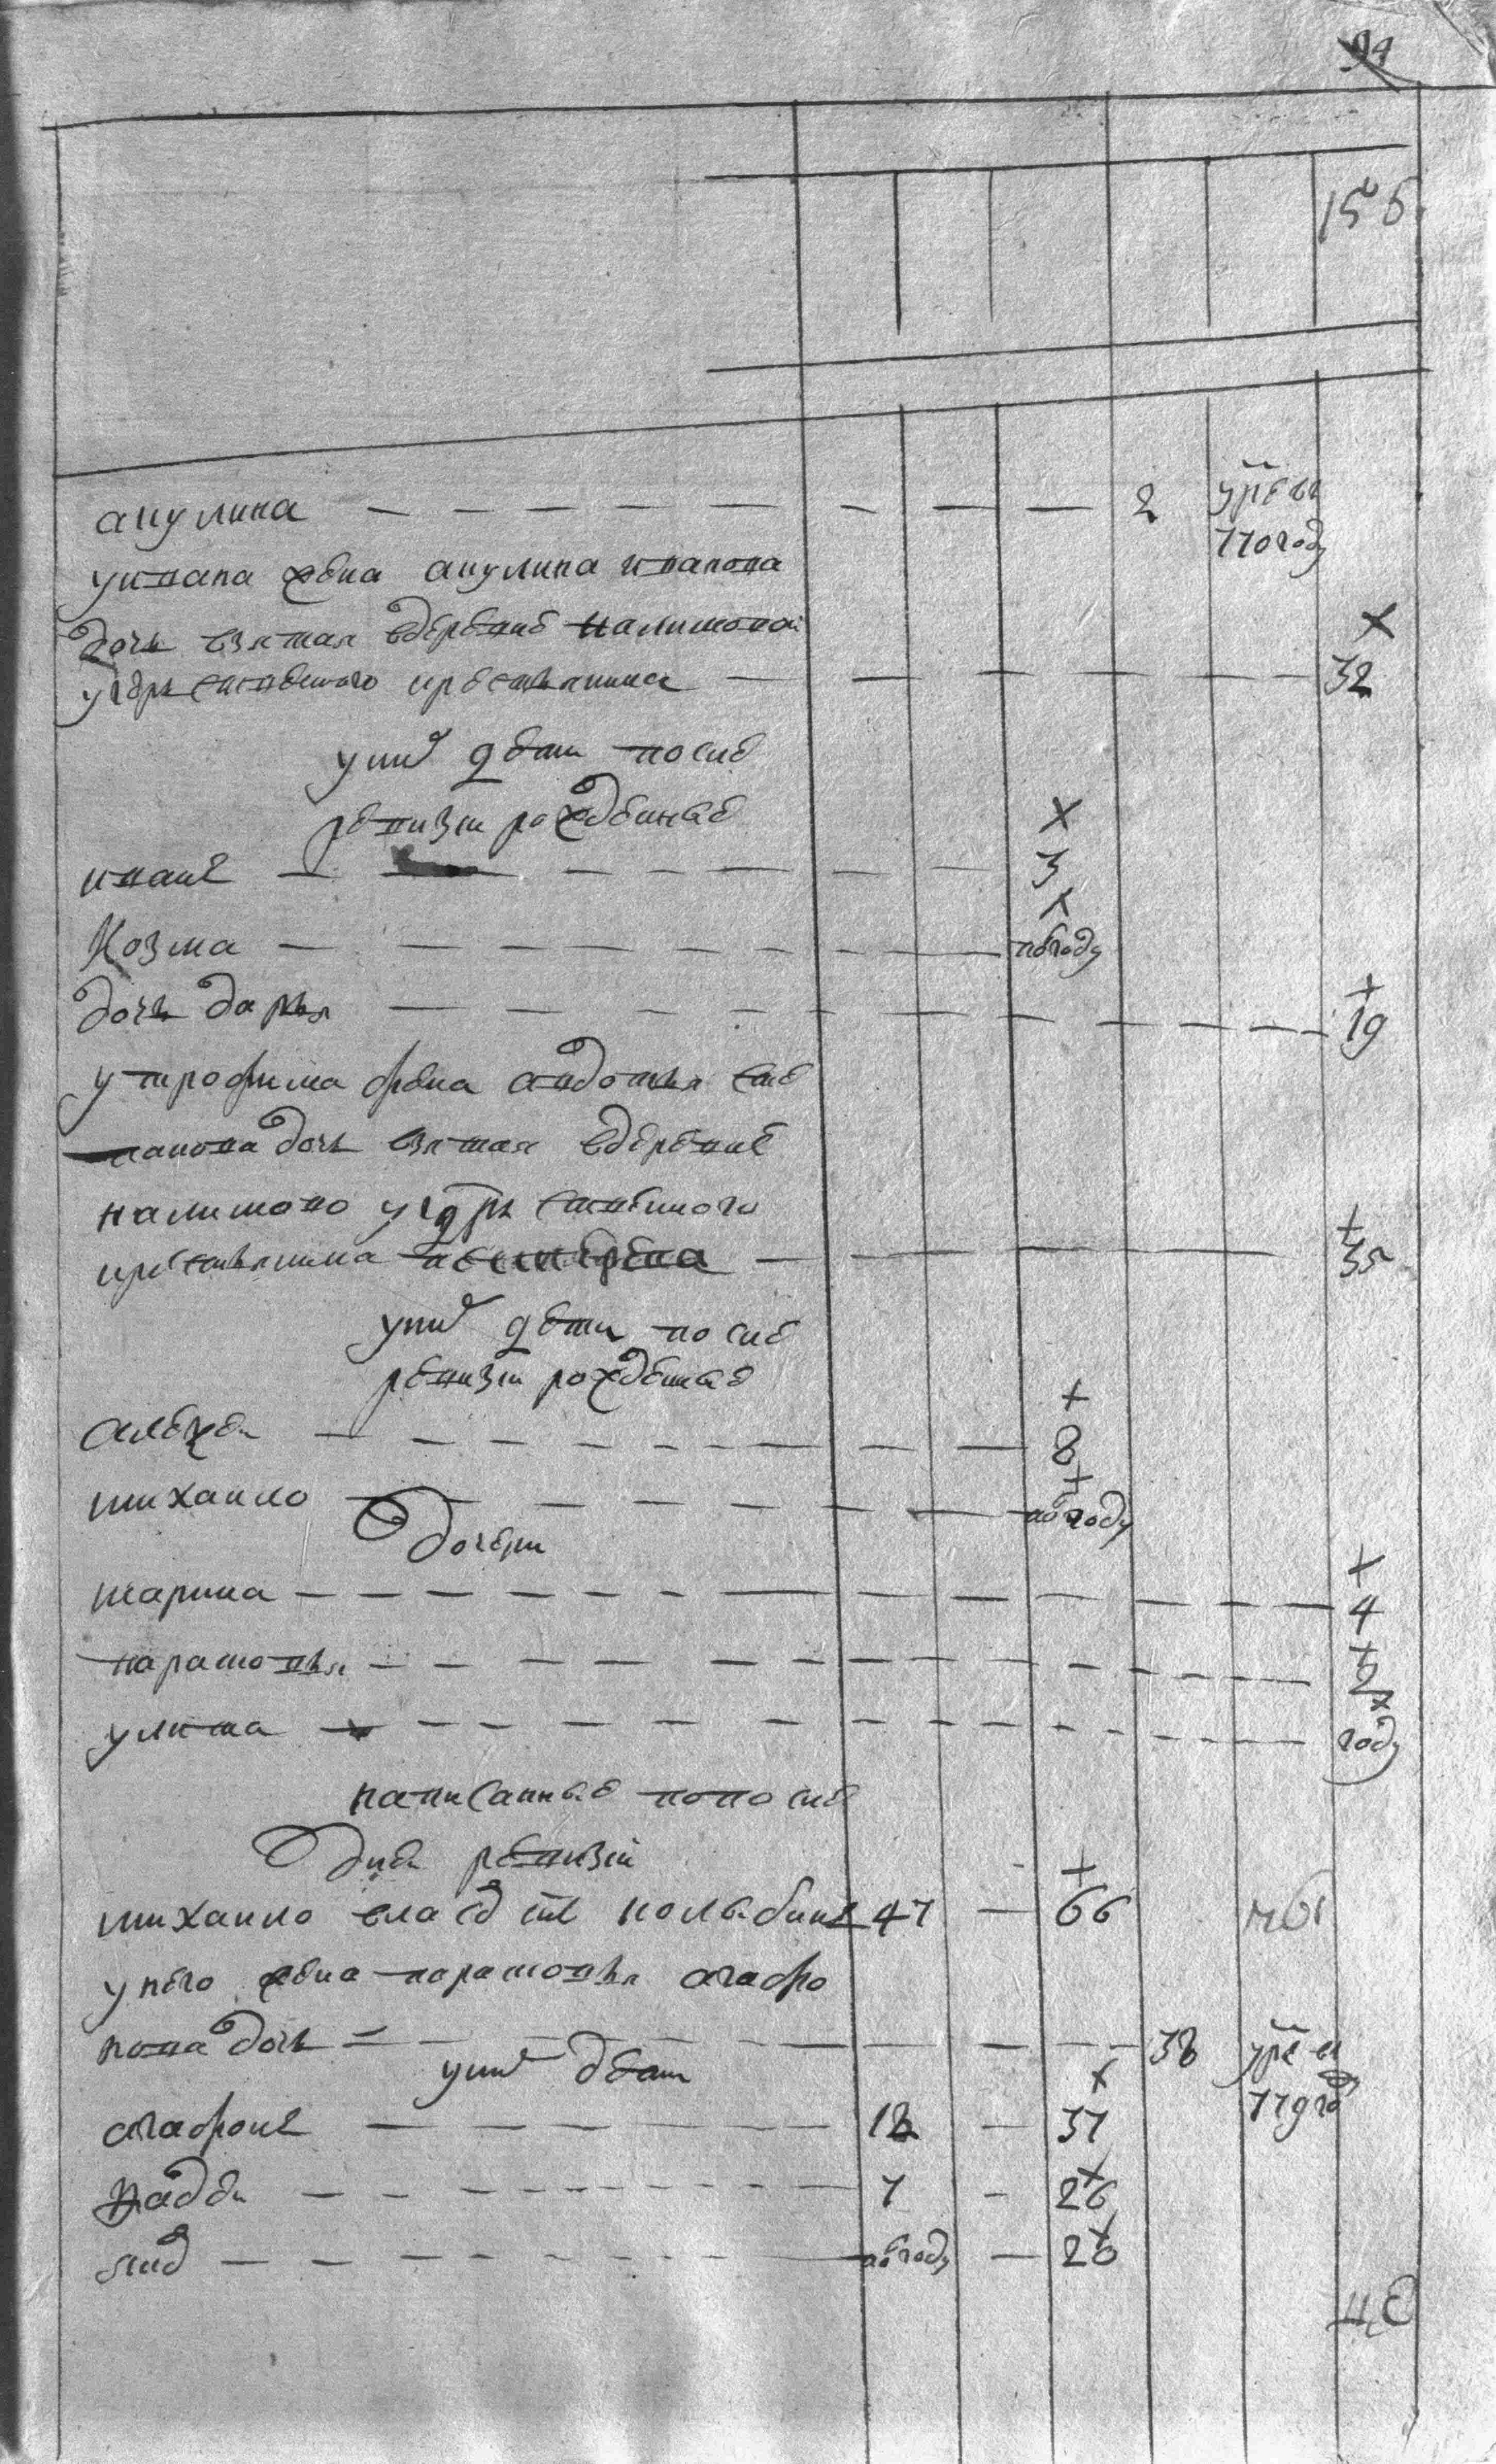 94
156
акулина — 2 умре въ
770 году
уивана жена акулина иванова
дочь взятая вдеревне налимовой
учерносошного крестьянина — 32
уних дети после
ревизии рожденные
иванъ — 3
Козма — полгоду
дочь дарья — 19
утрофима жена авдотья сте
панова дочь взятая вдеревне
налимово
крестьянина — 35
уних дети после
ревизии рожденные
алексей — 8
михаило — полгоду
дочери
марина — 4
парамовья — 2
улита — году
написанные попосле
дней ревизии
михаило 47 — 66
унего жена парамовья агафо
нова дочь — 38 умре в
779 го
уних дети
агафонъ — 18 — 37
фадей — 7 — 26
яков — полгоду — 20